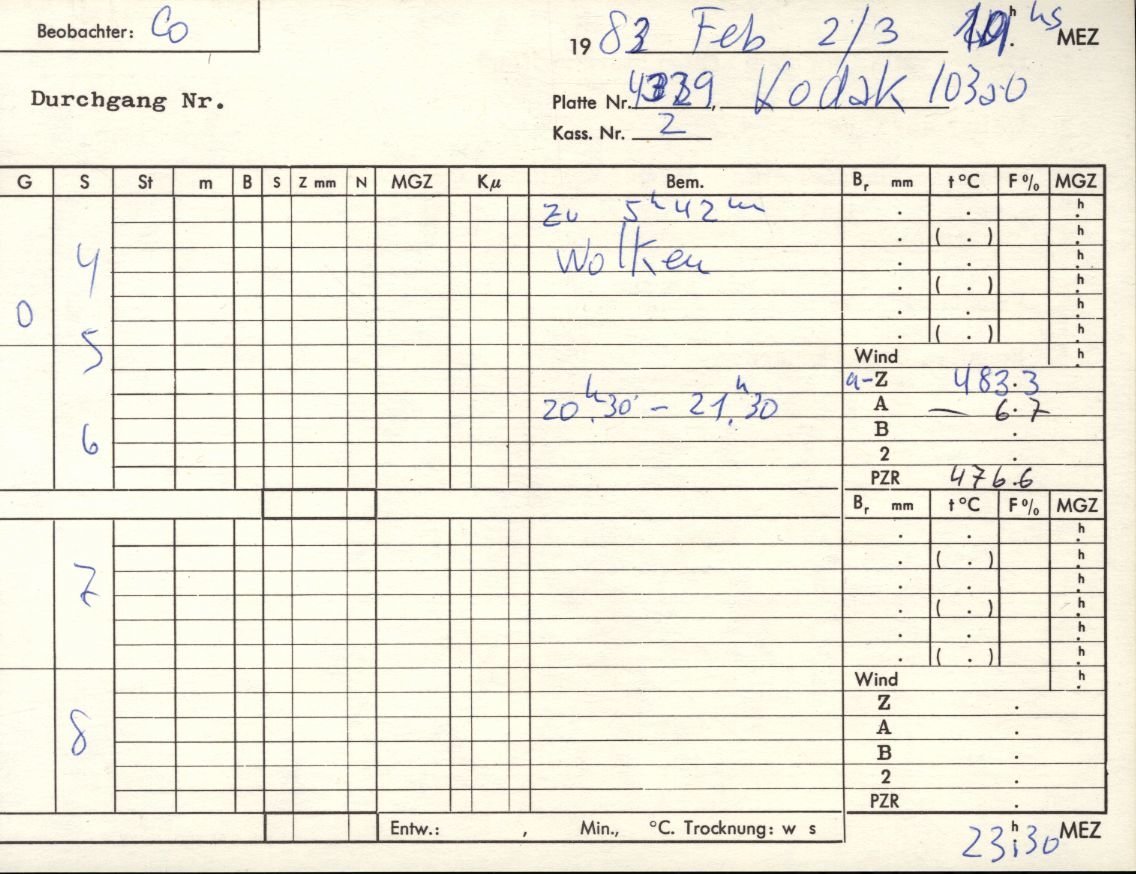 Beobachter: Co
19 83 Feb 2/3 h hs MEZ
Durchgang Nr.
Platte Nr. , Kodak 103a-0
Kass. Nr. 2
G S St m B S Z mm N MGZ Kμ Bem. Br mm t °C F % MGZ
zu 5h 42m . . h
. ( . ) h
4 Wolken . . h
. ( . ) h
0 . . h
. ( . ) h
5 Wind h
a-Z 483.3
20h.30 - 21h.30 A — 6.7
B .
6 2 .
PZR 476.6
Br mm t °C F % MGZ
. . h
. ( . ) h
7 . . h
. ( . ) h
. . h
. ( . ) h
Wind h
Z .
8 A .
B .
2 .
PZR .
Entw.: , Min., °C. Trocknung: w s
23h30 MEZ